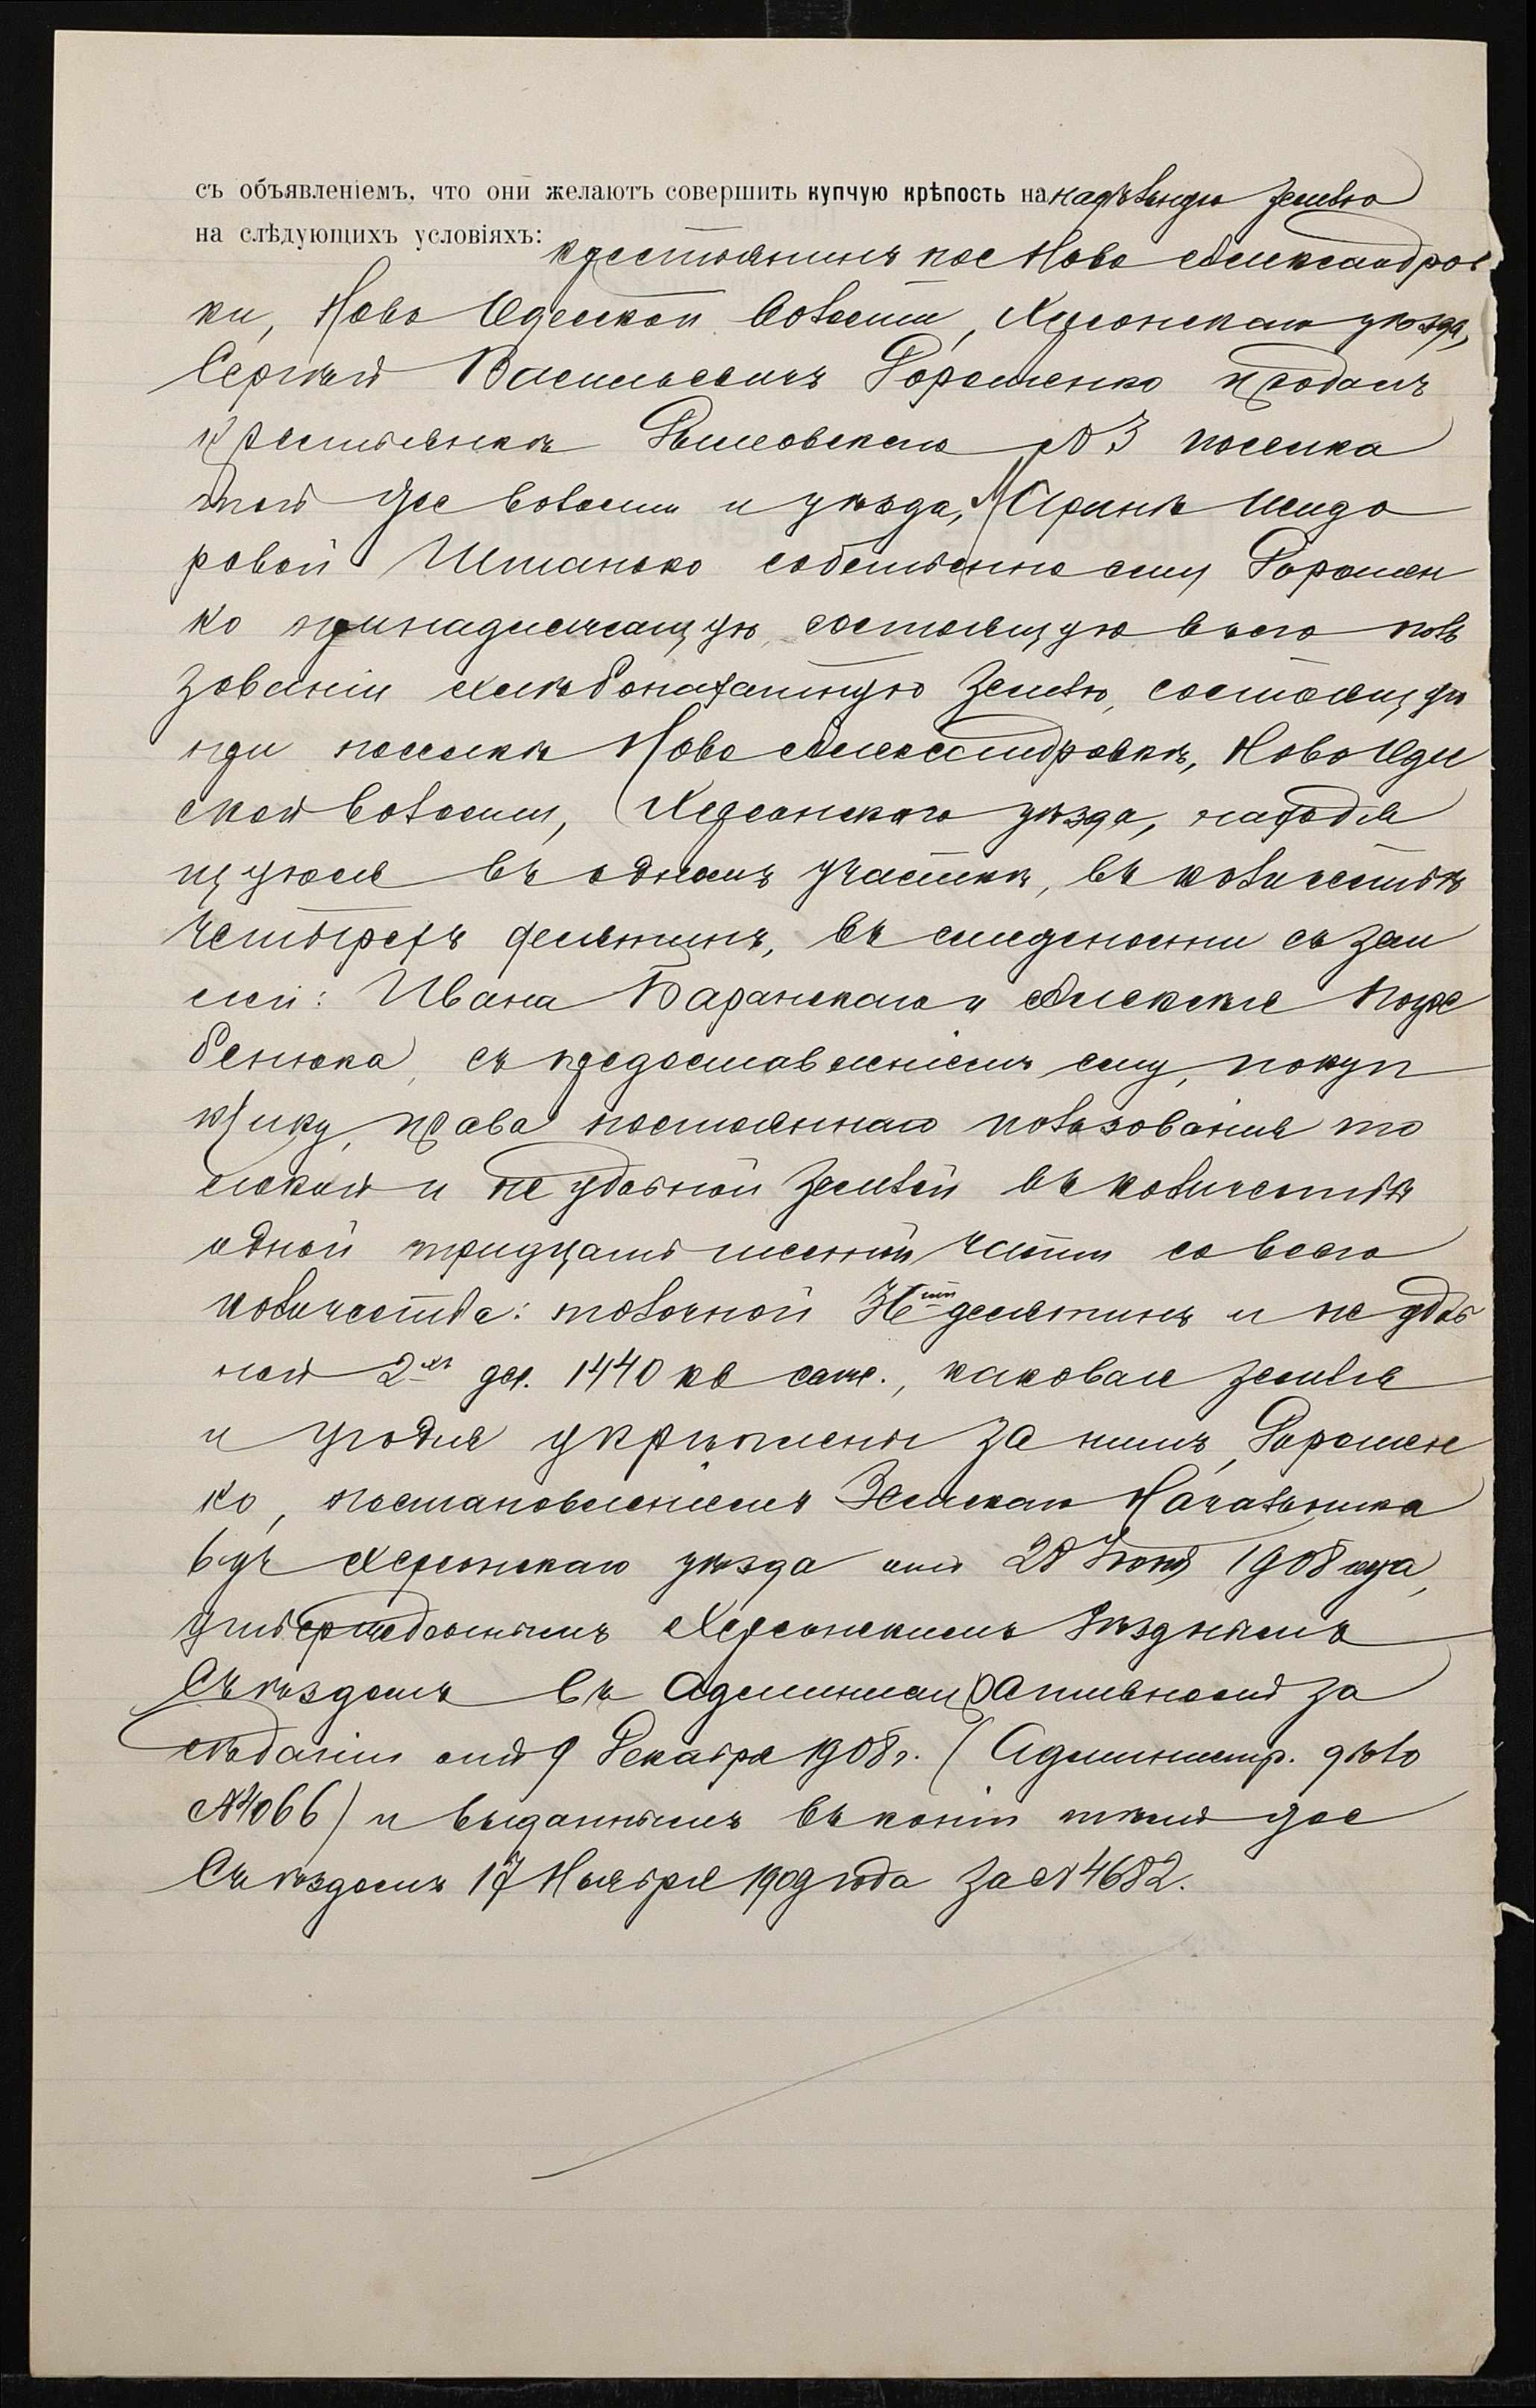 съ объявленіемъ, что они желаютъ совершить купчую крѣпость на надѣльную землю
на слѣдующихъ условіяхъ: крестьянинъ пос Ново Александров
ки, Ново Одесской волости, Херсонскаго уѣзда,
Сергѣй Васильевичъ Дорошенко продалъ
крестьянкѣ Дымовскаго №3 поселка
той же волости и уѣзда, Иринѣ Исидо
ровой Штанько собственно ему Дорошен
ко принадлежащую, состоящую в его поль
зованіи хлѣбопахатную землю, состоящую
при поселкѣ Ново Александровкѣ, Ново Оде
ской волости, Херсонскаго уѣзда, находя
щуюся въ одномъ участкѣ, въ количествѣ
четырехъ десятинъ, въ смежности съ зем
лей: Ивана Баранскаго и Алексѣя
съ предоставленіемъ ему, покуп
щику, права постояннаго пользованія то
локой и не удобной землей въ количествѣ
одной тридцать шестой части со всего
количества: толочной десятинъ и не удоб
ной 2хъ дес. 1440 кв саж., каковая земля
и угодія укрѣплены за нимъ, Дорошен
ко, постановленіемъ Земскаго Начальника
6 уч Херсонскаго уѣзда отъ 28 Іюня 1908 года,
утвержденнымъ Херсонскимъ Уѣзднымъ
Съѣздомъ въ Административномъ за
сѣданіи отъ 9 Декабря 1908 г. (Администр. дѣло
№4066) и выданнымъ въ копіи тѣмъ же
Съѣздомъ 17 Ноября 1909 года за №4682.